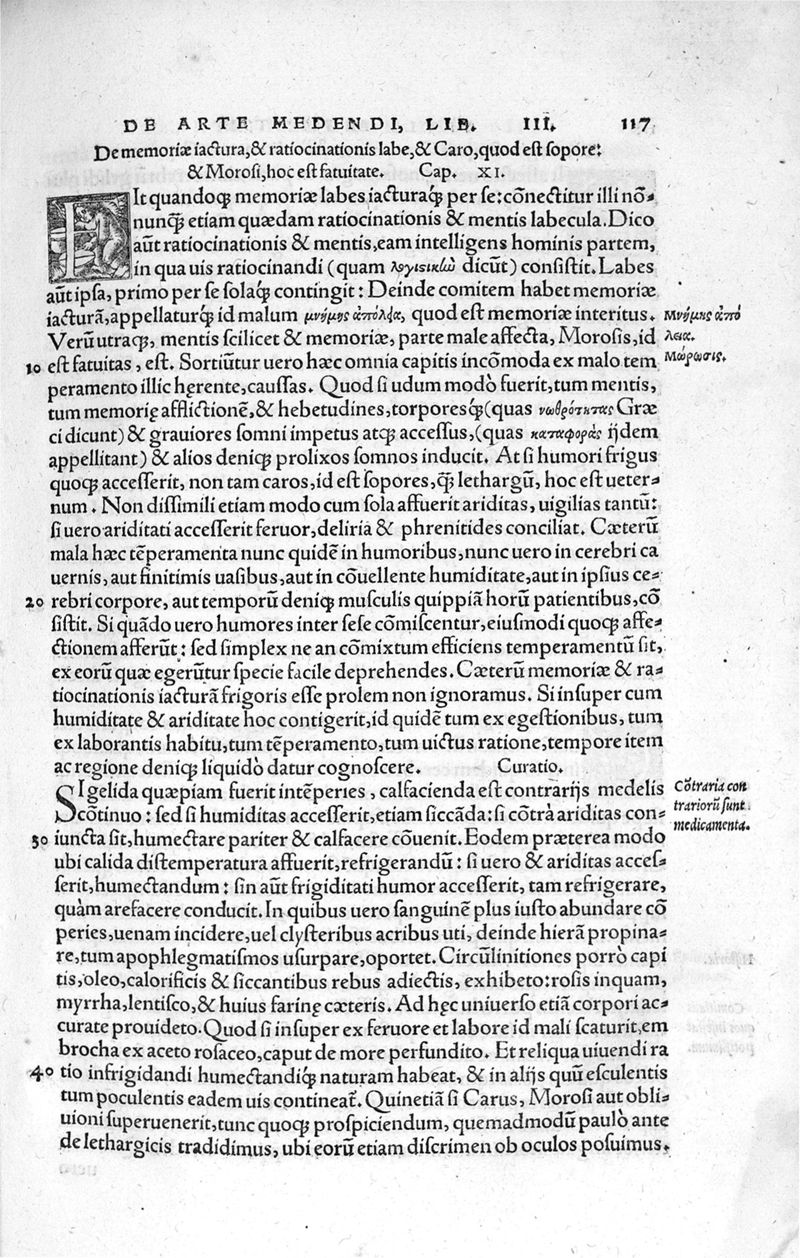 DE ARTE MEDENDI, LIB. III. 117
De memoriæ iactura, & ratiocinationis labe, & Caro, quod est sopore:
& Morosi, hoc est fatuitate. Cap. XI.
FIt quandoqꝫ memoriæ labes iacturaqꝫ per se: cōnectitur illi nō-
nunqꝫ etiam quædam ratiocinationis & mentis labecula. Dico
aūt ratiocinationis & mentis, eam intelligens hominis partem,
in qua uis ratiocinandi (quam λογισικὴν dicūt) consistit. Labes
aūt ipsa, primo per se solaqꝫ contingit: Deinde comitem habet memoriæ
iacturā, appellaturqꝫ id malum μνήμης ἀπόλεια, quod est memoriæ interitus. Μνήμης ἀπό
Verū utraqꝫ, mentis scilicet & memoriæ, parte male affecta, Morosis, id λεια.
10 est fatuitas, est. Sortiūtur uero hæc omnia capitis incōmoda ex malo tem Μώρωσις.
peramento illic hęrente, caussas. Quod si udum modò fuerit, tum mentis,
tum memorię afflictionē, & hebetudines, torporesqꝫ (quas νωθρότητας Græ
ci dicunt) & grauiores somni impetus atqꝫ accessus, (quas καταφορὰς ijdem
appellitant) & alios deniqꝫ prolixos somnos inducit. At si humori frigus
quoqꝫ accesserit, non tam caros, id est sopores, qꝫ̃ lethargū, hoc est ueter-
num. Non dissimili etiam modo cum sola affuerit ariditas, uigilias tantū:
si uero ariditati accesserit feruor, deliria & phrenitides conciliat. Cæterū
mala hæc tēperamenta nunc quidē in humoribus, nunc uero in cerebri ca
uernis, aut finitimis uasibus, aut in cōuellente humiditate, aut in ipsius ce-
20 rebri corpore, aut temporū deniqꝫ musculis quippiā horū patientibus, cō
sistit. Si quādo uero humores inter sese cōmiscentur, eiusmodi quoqꝫ affe-
ctionem afferūt: sed simplex ne an cōmixtum efficiens temperamentū sit,
ex eorū quæ egerūtur specie facile deprehendes. Cæterū memoriæ & ra-
tiocinationis iacturā frigoris esse prolem non ignoramus. Si insuper cum
humiditate & ariditate hoc contigerit, id quidē tum ex egestionibus, tum
ex laborantis habitu, tum tēperamento, tum uictus ratione, tempore item
ac regione deniqꝫ liquidò datur cognoscere. Curatio.
SI gelida quæpiam fuerit intēperies, calfacienda est contrarijs medelis Cōtraria con
cōtinuo: sed si humiditas accesserit, etiam siccāda: si cōtrà ariditas con- trariorū sunt
30 iuncta sit, humectare pariter & calfacere cōuenit. Eodem præterea modo medicamenta.
ubi calida distemperatura affuerit, refrigerandū: si uero & ariditas acces-
serit, humectandum: sin aūt frigiditati humor accesserit, tam refrigerare,
quàm arefacere conducit. In quibus uero sanguinē plus iusto abundare cō
peries, uenam incidere, uel clysteribus acribus uti, deinde hierā propina-
re, tum apophlegmatismos usurpare, oportet. Circūlinitiones porrò capi
tis, oleo, calorificis & siccantibus rebus adiectis, exhibeto: rosis inquam,
myrrha, lentisco, & huius farinę cæteris. Ad hęc uniuerso etiā corpori ac-
curate prouideto. Quod si insuper ex feruore et labore id mali scaturit, em
brocha ex aceto rosaceo, caput de more perfundito. Et reliqua uiuendi ra
40 tio infrigidandi humectandiqꝫ naturam habeat, & in alijs quū esculentis
tum poculentis eadem uis contineat̄. Quinetiā si Carus, Morosi aut obli-
uioni superuenerit, tunc quoqꝫ prospiciendum, quemadmodū paulò ante
de lethargicis tradidimus, ubi eorū etiam discrimen ob oculos posuimus.